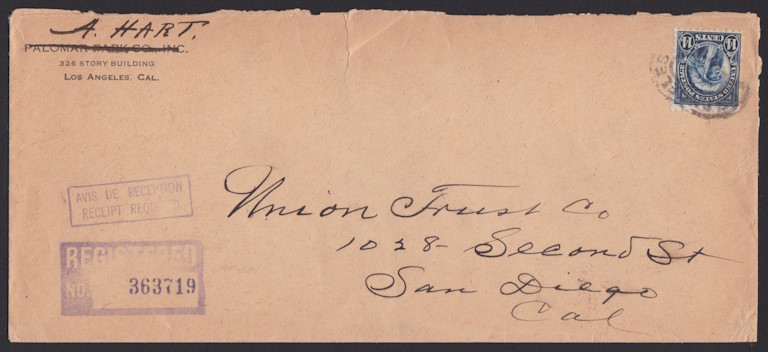 A. HART.
PALOMAR PARK CO., INC.
326 STORY BUILDING
LOS ANGELES, CAL.
11 CENTS 11
UNITED STATES POSTAGE
AVIS DE RECEPTION
RECEIPT REQU
REGISTERED
NO. 363719
Union Trust Co
1028 - Second St
San Diego
Cal